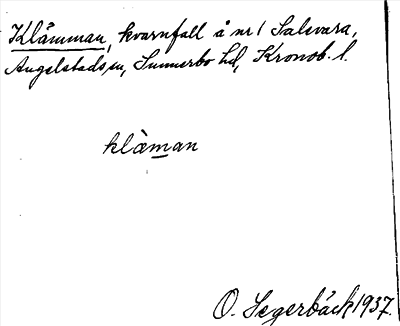 Klämman, kvarnfall å nr 1 Salsvara,
Angelstads sn, Sunnerbo hd, Kronob. l.
klàman
O. Segerbäck 1937.